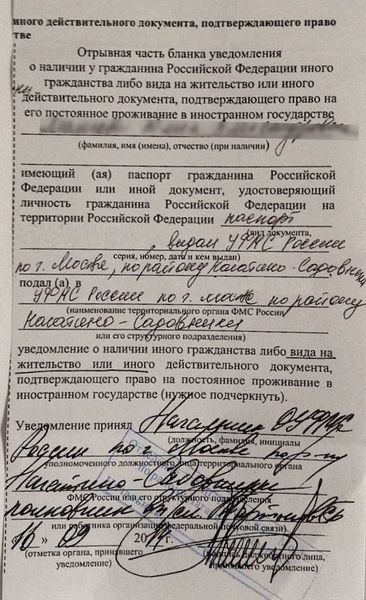 иного действительного документа, подтверждающего право
тве
Отрывная часть бланка уведомления
о наличии у гражданина Российской Федерации иного
гражданства либо вида на жительство или иного
действительного документа, подтверждающего право на
его постоянное проживание в иностранном государстве
(фамилия, имя (имена), отчество (при наличии)
имеющий (ая) паспорт гражданина Российской
Федерации или иной документ, удостоверяющий
личность гражданина Российской Федерации на
территории Российской Федерации паспорт
(вид документа,
выдан УФМС России
серия, номер, дата и кем выдан)
по г. Москве, по району Нагатино-Садовники
подал (а) в
УФМС России по г. по району
Нагатино-Садовники
(наименование территориального органа ФМС России
или его структурного подразделения)
уведомление о наличии иного гражданства либо вида на
жительство или иного действительного документа,
подтверждающего право на постоянное проживание в
иностранном государстве (нужное подчеркнуть).
Уведомление принял Начальник ОУФМС
(должность, фамилия, инициалы
России по г. Москве по р-ну
уполномоченного должностного лица территориального органа
Нагатино-Садовники
ФМС России или его структурного подразделения
полковник вн. сл.
или работника организации федеральной почтовой связи)
16 » 09 2014
(отметка органа, принявшего (подпись должностного лица,
уведомление) принявшего уведомление)